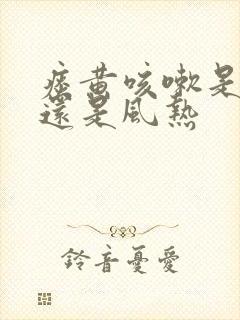 痰黄咳嗽是
還是風熱
鈴音憂愛